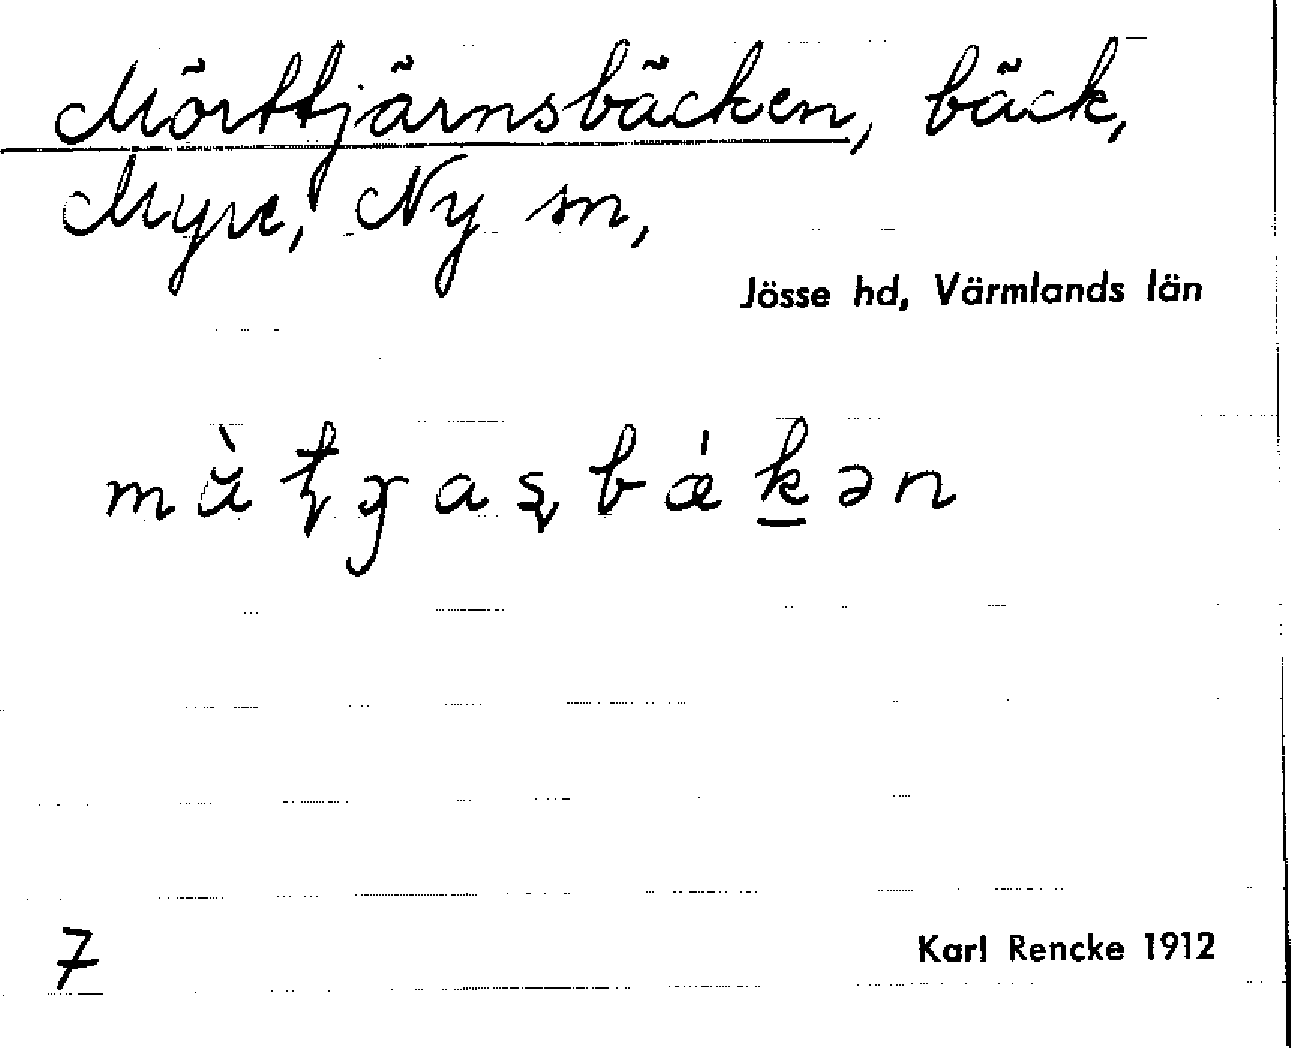 Mörttjärnsbäcken, bäck,
Myre, Ny sn,
Jösse hd, Värmlands län
7
Karl Rencke 1912